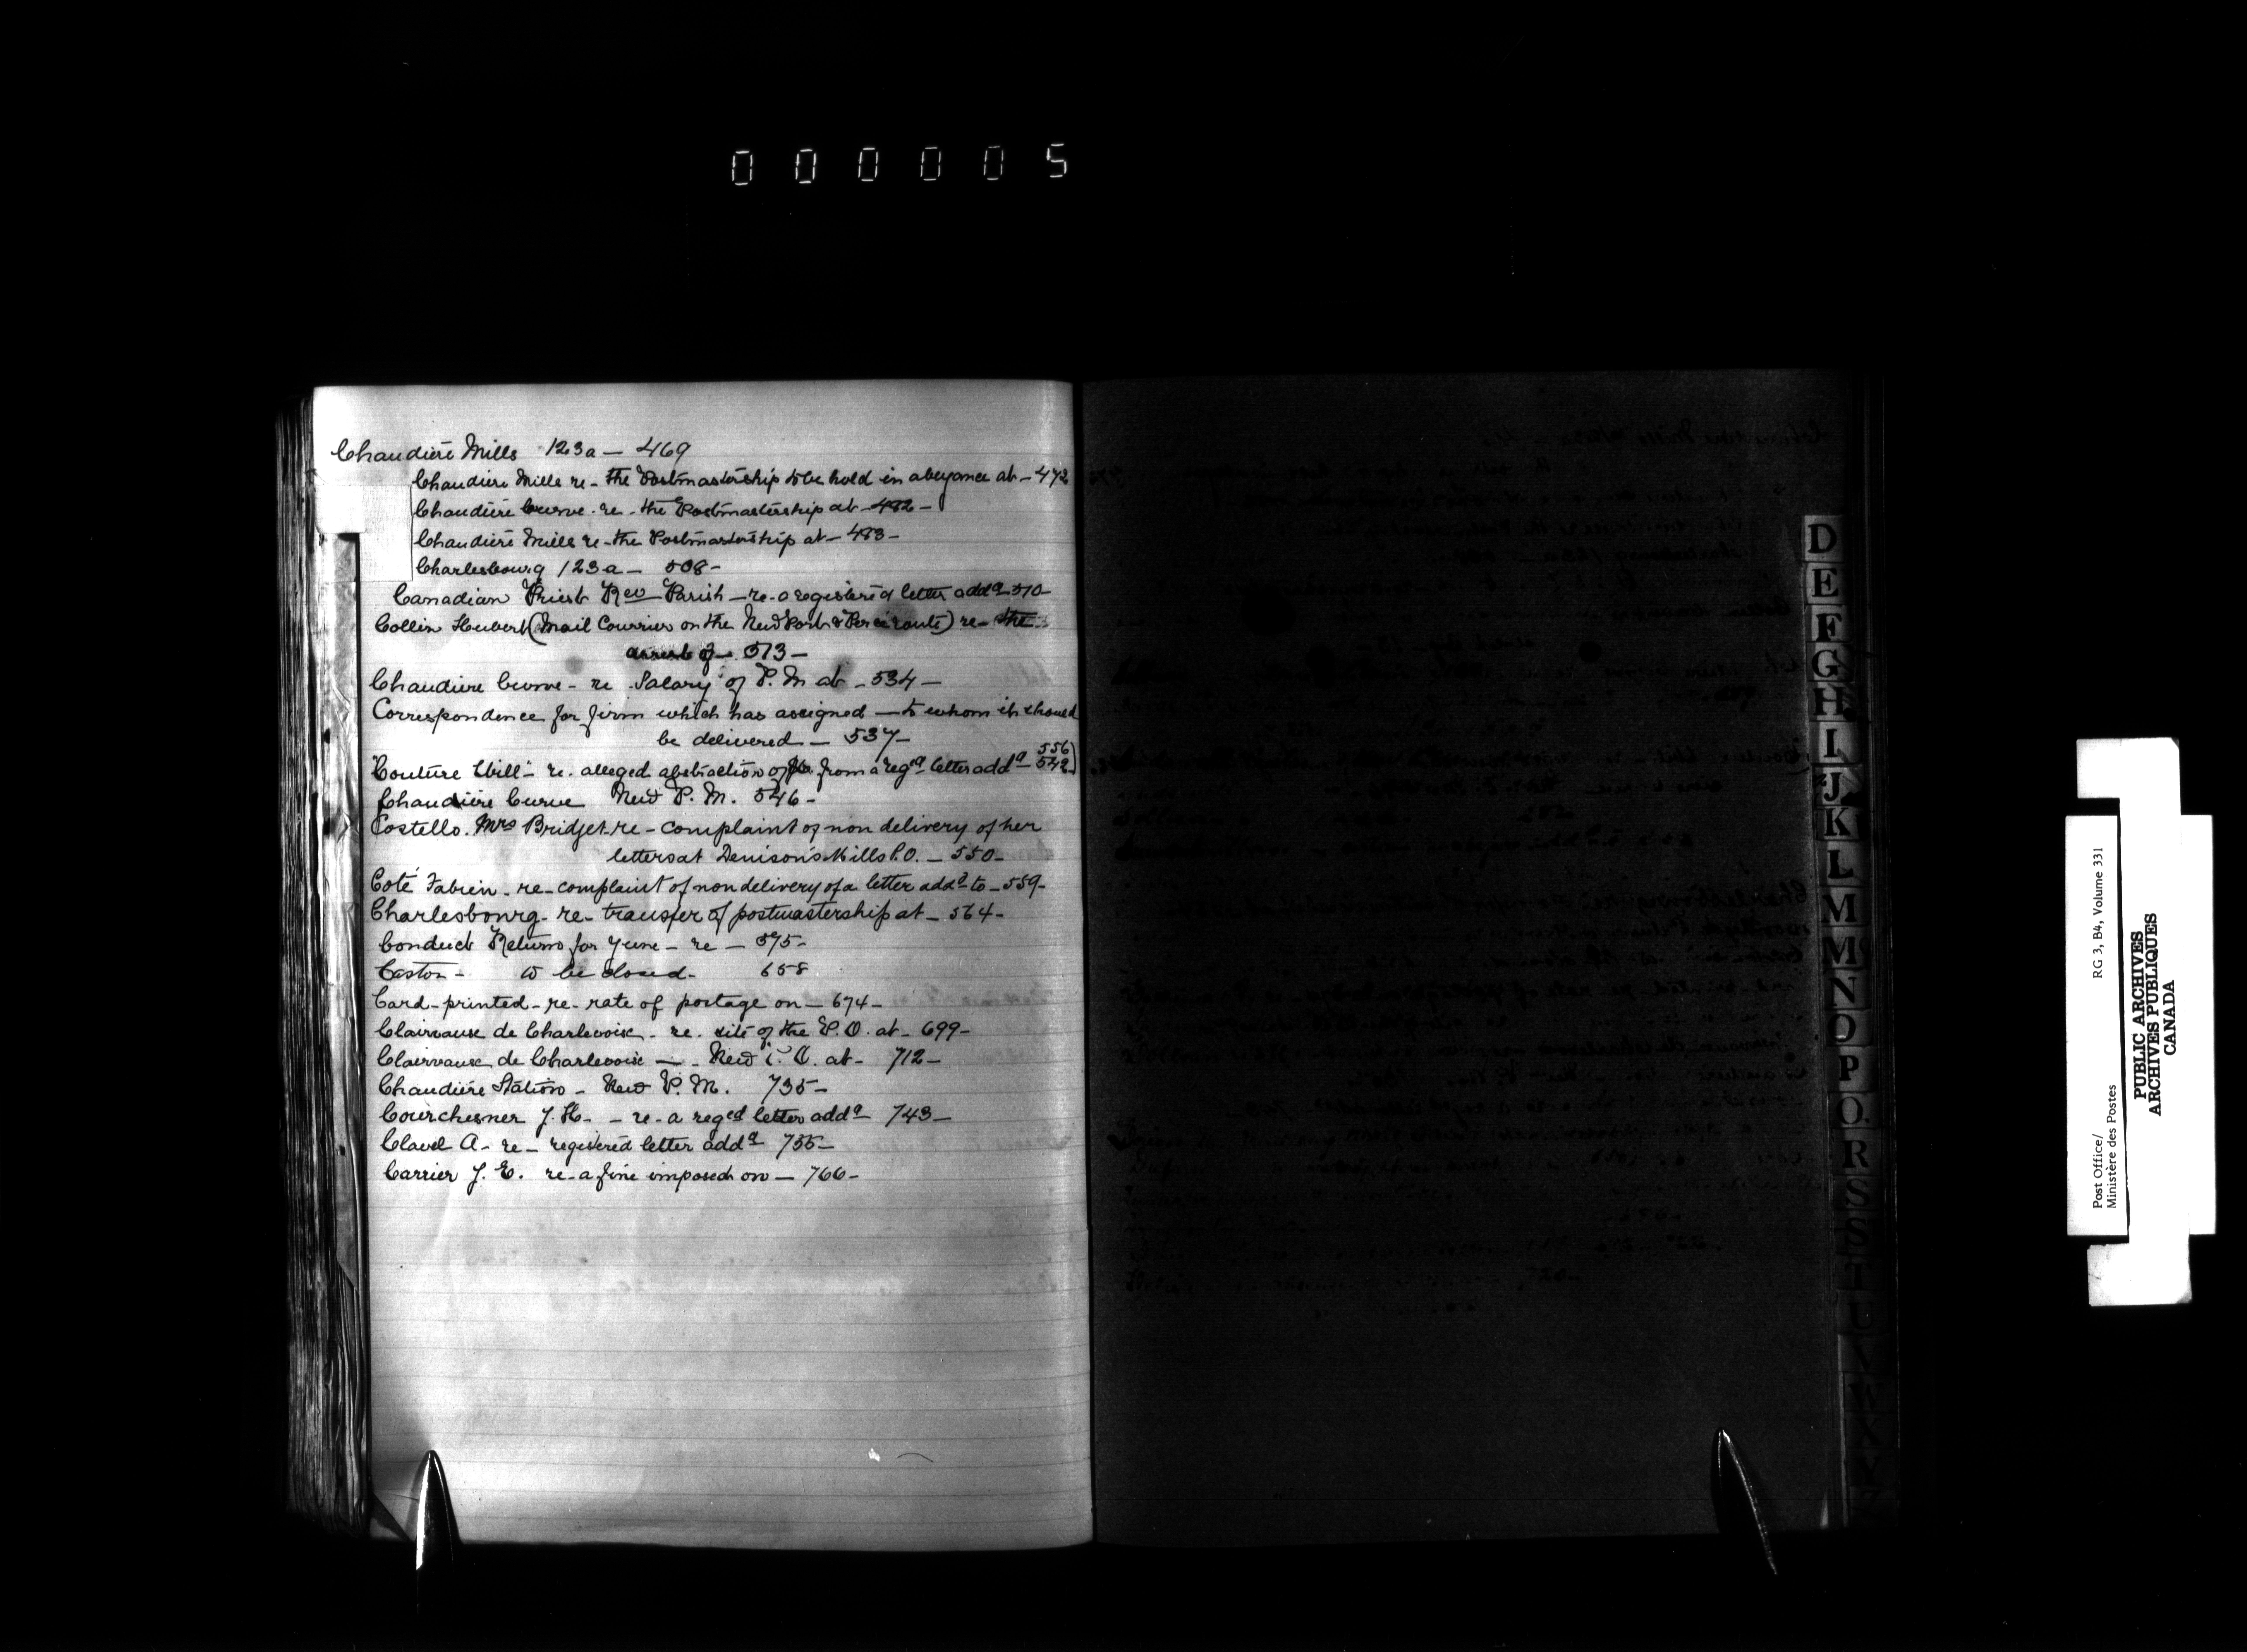 000005
Chaudière Mills 123a — 469
Chaudière Mills re - the Postmastership to be held in abeyance at - 472
Chaudière Curve - re - the Postmastership at - 482 -
Chaudière Mills re - the Postmastership at - 483 -
Charlesbourg 123a — 508 -
Canadian Priest Rev Parish — re - a registered letter addd 510 -
Collin Hubert (Mail Courrier on the New Port & Percé route) re - the
arrest of - 513 -
Chaudière Curve - re Salary of P. M at - 534 —
Correspondence for firm which has assigned — to whom it should
be delivered — 537 -
Couture — re. alleged abstraction of from a regd letter addd 556
542
Chaudière Curve New P. M. 546 -
Costello. Mrs Bridget - re - complaint of non delivery of her
letters at Denison's Mills P.O. — 550 -
Coté Fabien - re - complaint of non delivery of a letter addd to - 559 -
Charlesbourg - re - transfer of postmastership at - 564 -
Conduct Returns for June - re — 575 -
Caston - to be closed - 658
Card - printed - re - rate of postage on - 674 -
Clairvaux de Charlevoix - re. site of the P. O. at - 699 -
Clairvaux de Charlevoix — - New P. O. at - 712 —
Chaudière Station - New P. M. 735 -
Courchesner J. H. - re - a reged letter addd 743 —
Clavel A - re - registered letter addd 755 -
Carrier J. E. re - a fine imposed on — 766 -
D
E
F
G
H
I
J
K
L
M
M
N
O
P
Q
R
S
S
T
U
V
W
X
Y
Z
Post Office/
Ministère des Postes
RG 3, B4, Volume 331
PUBLIC ARCHIVES
ARCHIVES PUBLIQUES
CANADA